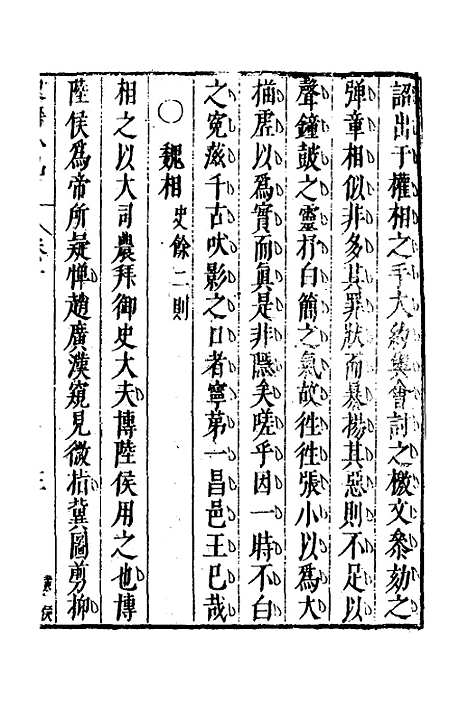 詔出于權相之手大約集會討之檄文叅劾之
彈章相似非多其罪狀而暴揚其惡則不足以
聲鐘鼓之靈抒白簡之氣故徃徃張小以爲大
描虛以爲實而眞是非隱矣嗟乎因一時不白
之寃滋千古吠影之口者寧第一昌邑王已哉
○魏相史餘二則
相之以大司農拜御史大夫博陸侯用之也博
陸侯爲帝所疑憚趙廣漢窺見微指冀圖剪抑
三